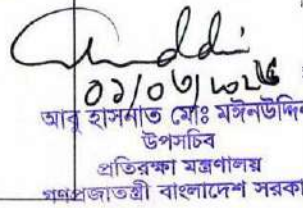 ০১/০৩/২০২৪
আবু হাসনাত মোঃ মঈনউদ্দিন
উপসচিব
প্রতিরক্ষা মন্ত্রণালয়
গণপ্রজাতন্ত্রী বাংলাদেশ সরকার